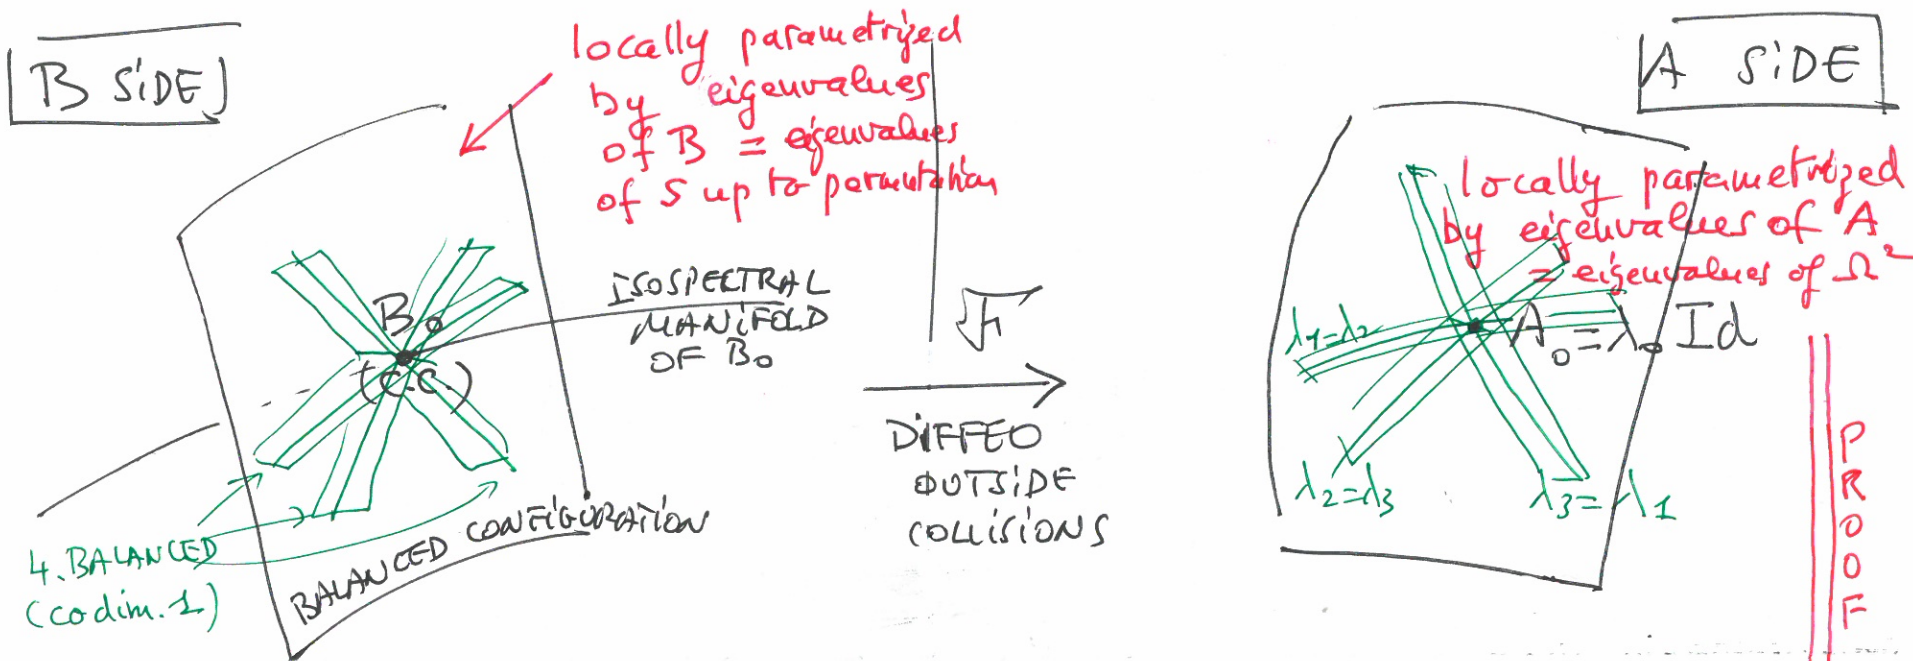 B SIDE
locally parametrized
by eigenvalues
of B = eigenvalues
of S up to permutation
B₀
(C.C.)
ISOSPECTRAL
MANIFOLD
OF B₀
4. BALANCED
(codim. 1)
BALANCED CONFIGURATION
DIFFEO
OUTSIDE
COLLISIONS
A SIDE
locally parametrized
by eigenvalues of A
= eigenvalues of Ω²
λ1=λ2
A₀=λ₀ Id
λ2=λ3
λ3=λ1
PROOF